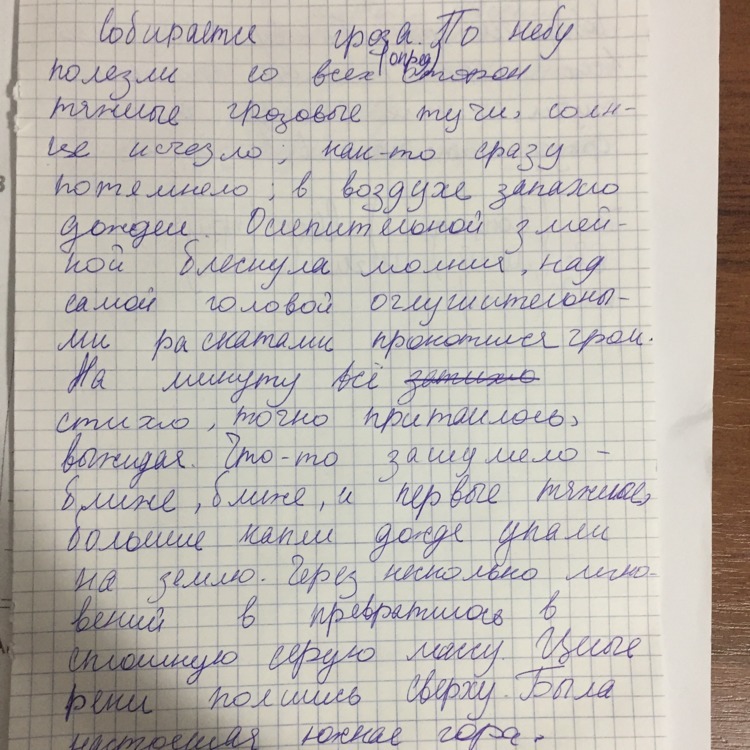 Собирается гроза. По небу
(опред)
полезли со всех сторон
тяжные грозовые тучи, солн-
це исчезло; как-то сразу
потемнело; в воздухе запахло
дождем. Ослепительной змей-
кой блеснула молния, над
самой головой оглушительны-
ми раскатами прокотился гром.
На минуту всё затихло
стихло, точно притаилось,
выжидая. Что-то зашумело -
ближе, ближе, и первые тяжные,
большие капли дожде упали
на землю. Через несколько мгно-
вений в превратилось в
сплошную серую массу. Целые
реки полились сверху. Была
настоящая южная гора.